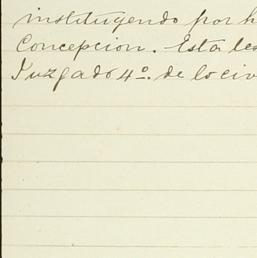 instituyendo por h
Concepcion. Esta les
Juzgado 4º. de lo civ